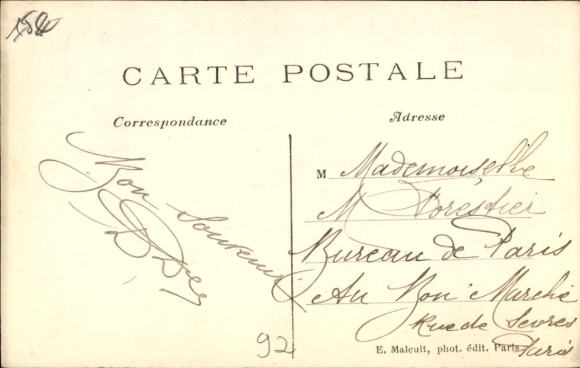 CARTE POSTALE
Correspondance
Adresse
Bon Souvenir
M Mademoiselle
M Forestier
Bureau de Paris
Au Bon Marché
Rue de Sevres
Paris
92
E. Malcuit, phot. édit. Paris